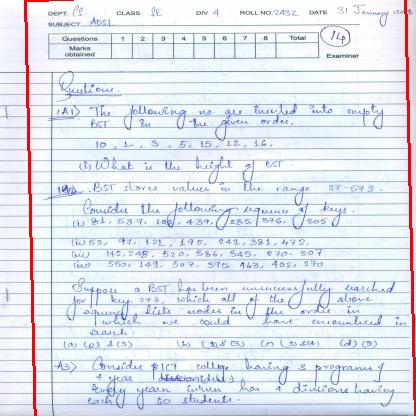 DEPT. CS CLASS SE DIV 4 ROLL NO. 2432 DATE 31 January, 201
SUBJECT ADSL
Questions 1 2 3 4 5 6 7 8 Total
Marks obtained
14
Examiner
Questions.
A1) The following no. are inserted into empty
BST in the given order.
10, 1, 3, 5, 15, 12, 16.
(i) What is the height of BST.
BST stores values in the range 37-573.
Consider the following sequence of keys.
(i) 81, 537, 439, 285, 376, 305
(ii) 52, 97, 121, 195, 242, 381, 472,
(iii) 142, 248, 520, 386, 345, 270, 307
(iv) 550, 149, 507, 395, 463, 402, 270
Suppose a BST has been unsuccessfully searched
for key 273, which all of the above
sequence lists nodes in the order in
which we could have encountered in
search.
(a) &(3) (b) (c) (d)
A3) Consider PICT college having 3 programs of
4 year
Every year inturn has 4 divisions having
each 60 students.